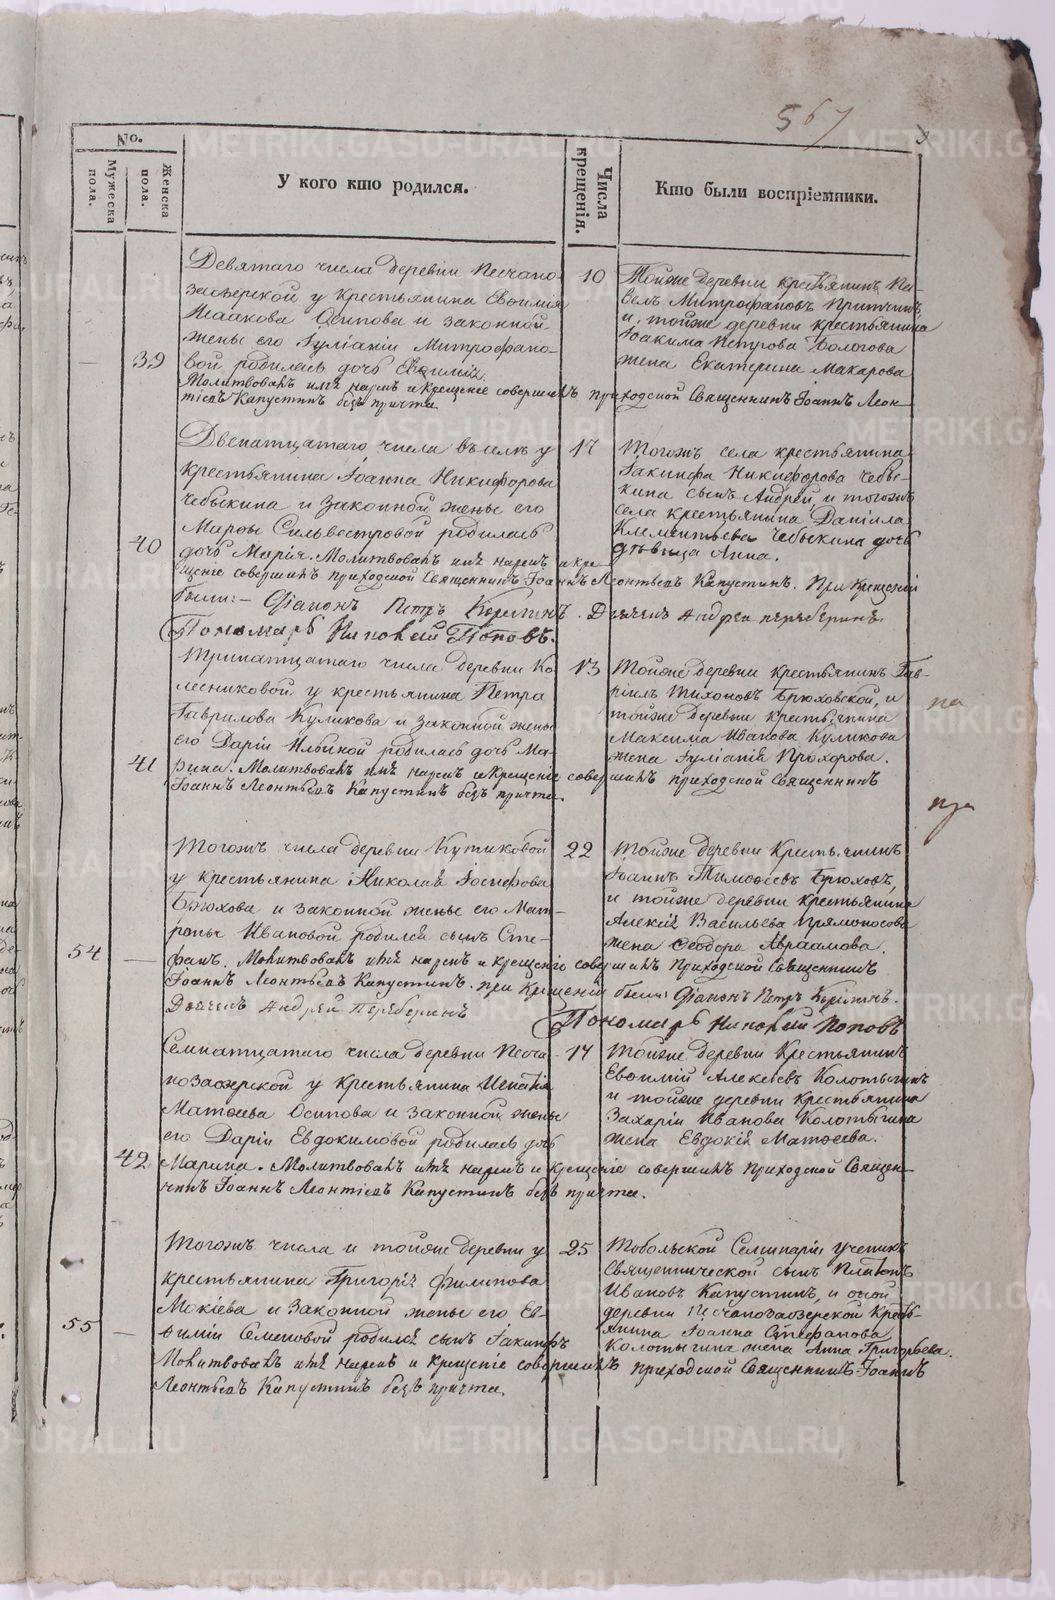 567
No.
Мужеска пола.
Женска пола.
У кого кто родился.
Числа крещенія.
Кто были воспріемники.
39
Девятаго числа деревни Песчано-
заозерской у крестьянина Евѳимія
Исаакова Осипова и законной
жены его Іуліаніи Митрофано-
вой родилась дочь Евѳимія.
10
Тойже деревни крестьянинъ Па-
велъ Митрофановъ
и тойже деревни крестьянина
Іоакима Петрова Бологова
жена Екатерина Макарова
Молитвовалъ имѣ нарекъ и крещеніе совершилъ приходской Священникъ Іоаннъ Леон-
тіевъ Капустинъ безъ причта
40
Двенатцатаго числа въ селѣ у
крестьянина Іоанна Никифорова
Чебыкина и законной жены его
Марѳы Сильвестровой родилась
дочь Марія. Молитвовалъ имѣ нарекъ и кре-
17
Тогожъ села крестьянина
Іакинфа Никифорова Чебы-
кина сынъ Андрей и тогожъ
села крестьянина Даніила
Клементьева Чебыкина дочь
дѣвица Анна.
щеніе совершилъ приходской Священникъ Іоаннъ Леонтьевъ Капустинъ. При крещеніи
были:- Діаконъ Петръ Дьячекъ Андрей
Пономарь Поповъ.
41
Тринатцатаго числа деревни Ко-
лесниковой у крестьянина Петра
Гаврилова Куликова и законной жены
его Даріи Ильиной родилась дочь Ма-
рина. Молитвовалъ имѣ нарекъ и крещеніе совершилъ приходской Священникъ
Іоаннъ Леонтьевъ Капустинъ безъ причта.
13
Тойже деревни крестьянинъ Гав-
ріилъ Тихоновъ Брюховской, и
тойже деревни крестьянина
Максима Иванова Куликова
жена Іуліанія Прохорова.
54
Тогожъ числа деревни Кутиковой
у крестьянина Николая Іосифова
Брюхова и законной жены его Мат-
роны Ивановой родился сынъ Сте-
фанъ. Молитвовалъ имѣ нарекъ и крещеніе совершилъ приходской Священникъ
22
Тойже деревни крестьянинъ
Іоаннъ Тимоѳеевъ Брюховъ,
и тойже деревни крестьянина
Алексія Васильева Прямоносова
жена Ѳеодора Авраамова.
Іоаннъ Леонтьевъ Капустинъ. при крещеніи были: Діаконъ Петръ
Дьячекъ Андрей
Пономарь Поповъ
42
Семнатцатаго числа деревни Песча-
нозаозерской у крестьянина Игнатія
Матѳеева Осипова и законной жены
его Даріи Евдокимовой родилась дочь
Марина. Молитвовалъ имѣ нарекъ и крещеніе совершилъ приходской Священ-
никъ Іоаннъ Леонтіевъ Капустинъ безъ причта.
17
Тойже деревни крестьянинъ
Евѳимій Алексѣевъ Колотыгинъ
и тойже деревни крестьянина
Захарія Иванова Колотыгина
жена Евдокія Матѳеева.
55
Тогожъ числа и тойже деревни у
крестьянина Григорія Филипова
Мокіева и законной жены его Ев-
ѳиміи Семеновой родился сынъ Іакинфъ
25
Тобольской Семинаріи ученикъ
Священнической сынъ Платонъ
Ивановъ Капустинъ, и оной
деревни Песчанозаозерской кресть-
янина Іоанна Стефанова
Колотыгина жена Анна Григорьева.
Молитвовалъ имѣ нарекъ и крещеніе совершилъ приходской Священникъ Іоаннъ
Леонтьевъ Капустинъ безъ причта.
METRIKI.GASO-URAL.RU